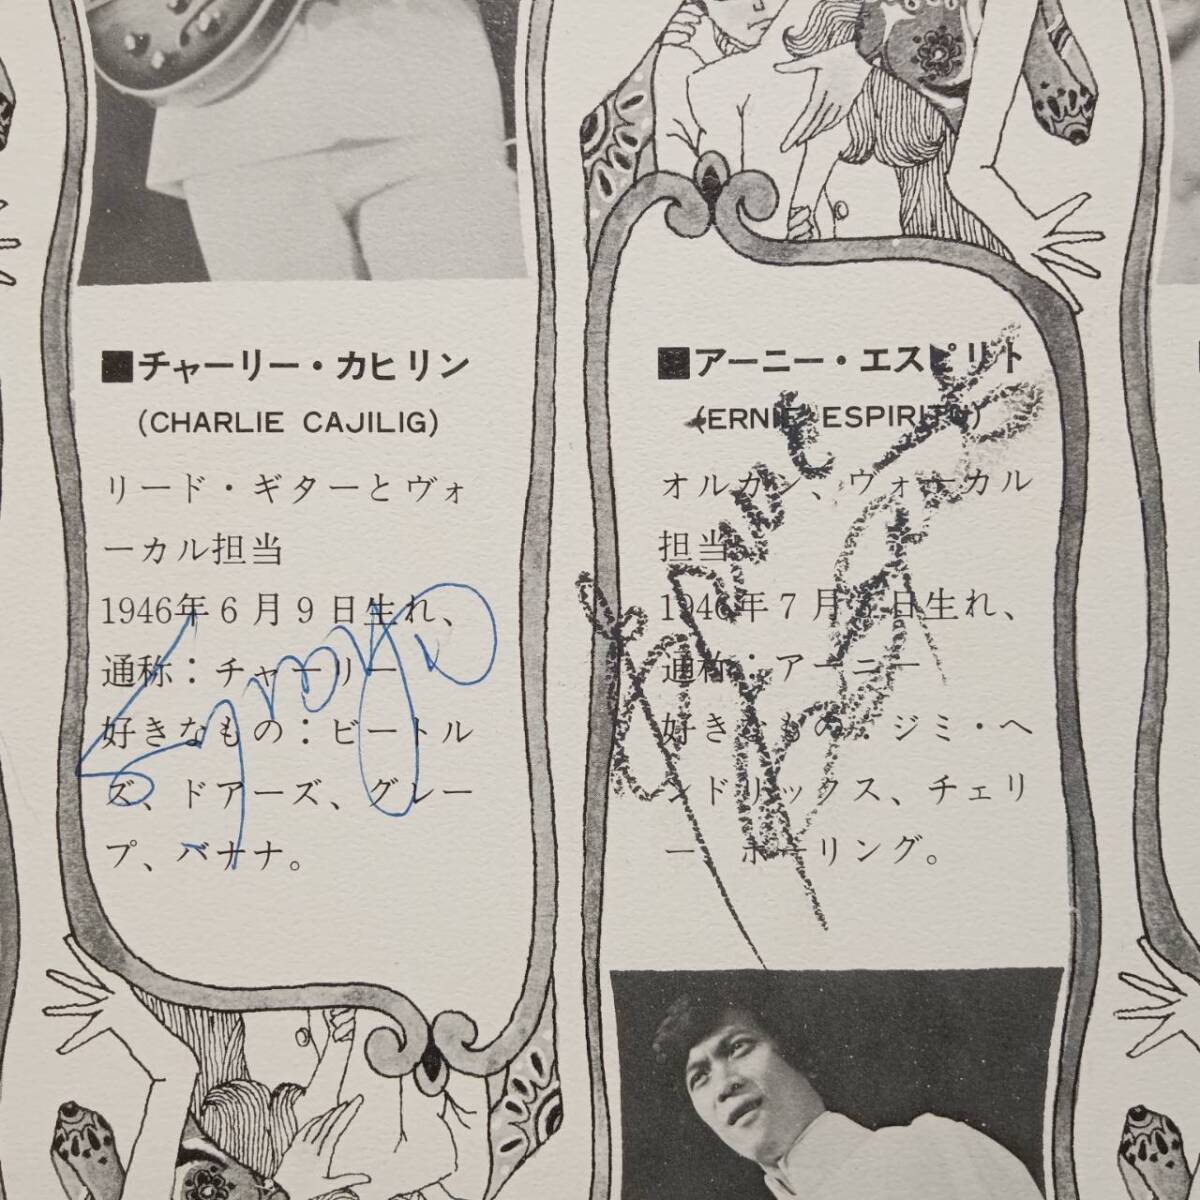 ■チャーリー・カヒリン
(CHARLIE CAJILIG)
リード・ギターとヴォ
ーカル担当
1946年6月9日生れ、
通称：チャーリー
好きなもの：ビートル
ズ、ドアーズ、グレー
プ、バナナ。
■アーニー・エスピリト
(ERNIE ESPIRITU)
オルガン、ヴォーカル
担当
1946年7月 日生れ、
通称：アーニー
好きなもの：ジミ・ヘ
ンドリックス、チェリ
ー ボーリング。